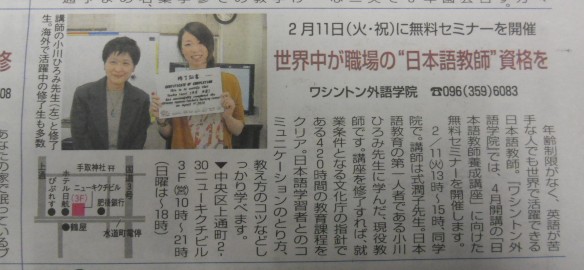 2月11日(火・祝)に無料セミナーを開催
世界中が職場の“日本語教師”資格を
ワシントン外語学院 ☎096(359)6083
年齢制限がなく、英語が苦
手な人でも世界で活躍できる
日本語教師。「ワシントン外
語学院」では、4月開講の「日
本語教師養成講座」に向けた
無料セミナーを開催します。
2/11(火)13時〜15時、同学
院で。講師は式潤子先生。日本
語教育の第一人者である小川
ひろみ先生に学んだ、現役教
師です。講座を修了すれば、就
業条件となる文化庁の指針で
ある420時間の教育課程を
クリア。日本語学習者とのコ
ミュニケーションのとり方、
教え方のコツなどし
っかり学べます。
▼中央区上通町2-
30ニューキクチビル
3F 営10時〜21時
(日曜は〜18時)
講師の小川ひろみ先生(左)と修了
生。海外で活躍中の修了生も多数
修了証書
CERTIFICATE OF COMPLETION
手取神社
国道3号
上通
ニューキクチビル
(3F)
ホテル日航
びぷれす
肥後銀行
鶴屋
水道町電停
修
08